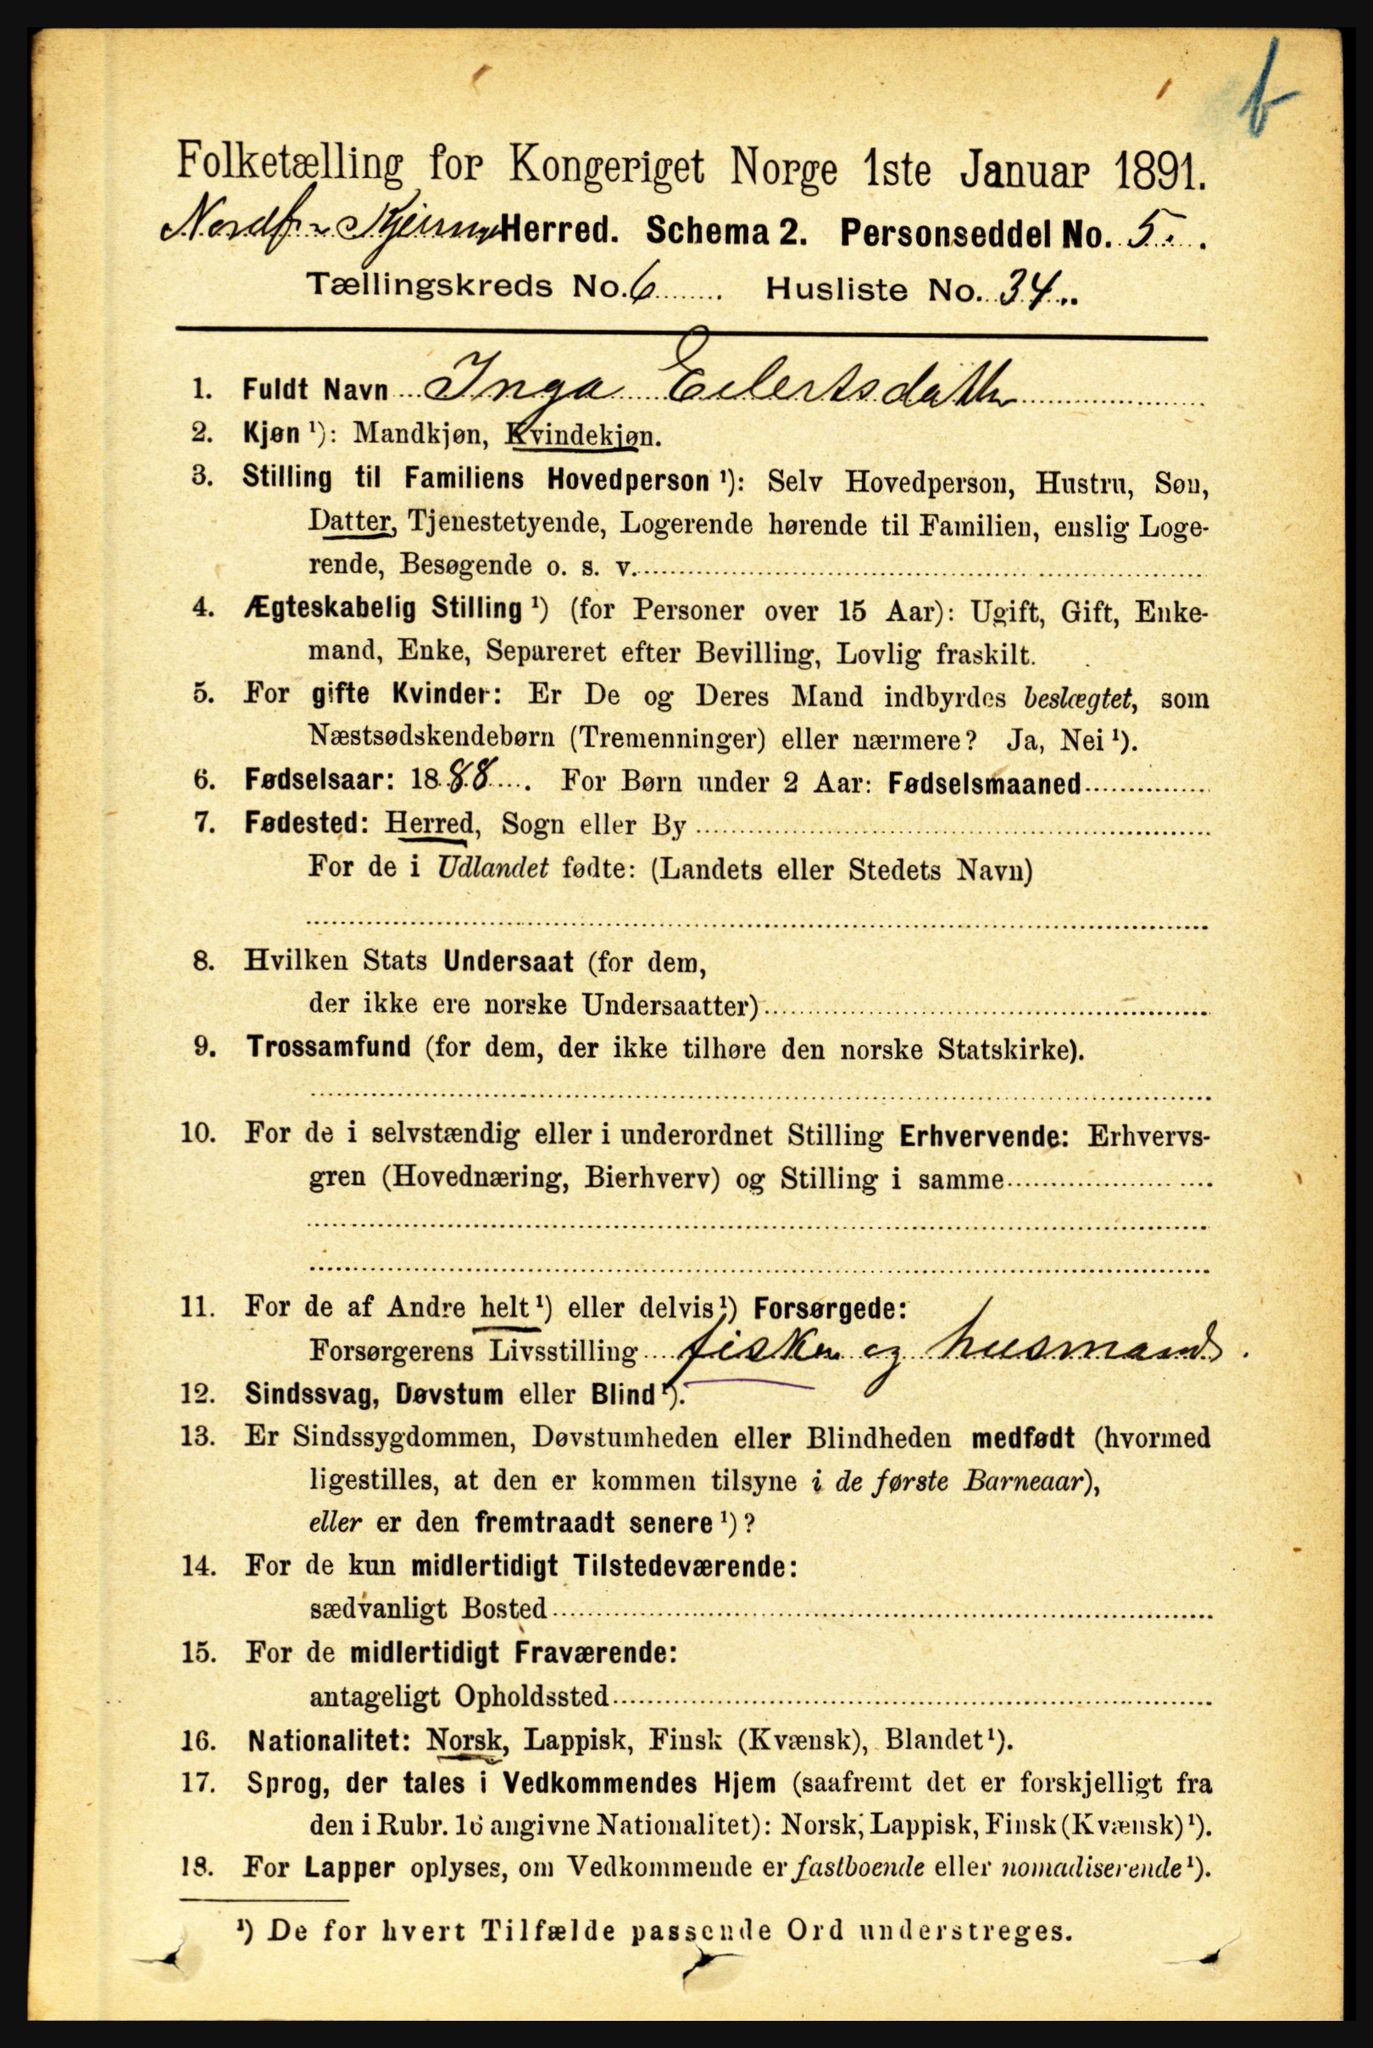 b
Folketælling for Kongeriget Norge 1ste Januar 1891.
Herred. Schema 2. Personseddel No. 5.
Tællingskreds No. 6 Husliste No. 34
1. Fuldt Navn Inga Eilertsdatter
2. Kjøn ¹): Mandkjøn, Kvindekjøn.
3. Stilling til Familiens Hovedperson ¹): Selv Hovedperson, Hustru, Søn,
Datter, Tjenestetyende, Logerende hørende til Familien, enslig Loge-
rende, Besøgende o. s. v.
4. Ægteskabelig Stilling ¹) (for Personer over 15 Aar): Ugift, Gift, Enke-
mand, Enke, Separeret efter Bevilling, Lovlig fraskilt.
5. For gifte Kvinder: Er De og Deres Mand indbyrdes beslægtet, som
Næstsødskendebørn (Tremenninger) eller nærmere? Ja, Nei ¹).
6. Fødselsaar: 1888. For Børn under 2 Aar: Fødselsmaaned
7. Fødested: Herred, Sogn eller By
For de i Udlandet fødte: (Landets eller Stedets Navn)
8. Hvilken Stats Undersaat (for dem,
der ikke ere norske Undersaatter)
9. Trossamfund (for dem, der ikke tilhøre den norske Statskirke).
10. For de i selvstændig eller i underordnet Stilling Erhvervende: Erhvervs-
gren (Hovednæring, Bierhverv) og Stilling i samme
11. For de af Andre helt ¹) eller delvis ¹) Forsørgede:
Forsørgerens Livsstilling fisker og husmand.
12. Sindssvag, Døvstum eller Blind ¹).
13. Er Sindssygdommen, Døvstumheden eller Blindheden medfødt (hvormed
ligestilles, at den er kommen tilsyne i de første Barneaar),
eller er den fremtraadt senere ¹)?
14. For de kun midlertidigt Tilstedeværende:
sædvanligt Bosted
15. For de midlertidigt Fraværende:
antageligt Opholdssted
16. Nationalitet: Norsk, Lappisk, Finsk (Kvænsk), Blandet ¹).
17. Sprog, der tales i Vedkommendes Hjem (saafremt det er forskjelligt fra
den i Rubr. 16 angivne Nationalitet): Norsk, Lappisk, Finsk (Kvænsk) ¹).
18. For Lapper oplyses, om Vedkommende er fastboende eller nomadiserende ¹).
¹) De for hvert Tilfælde passende Ord understreges.